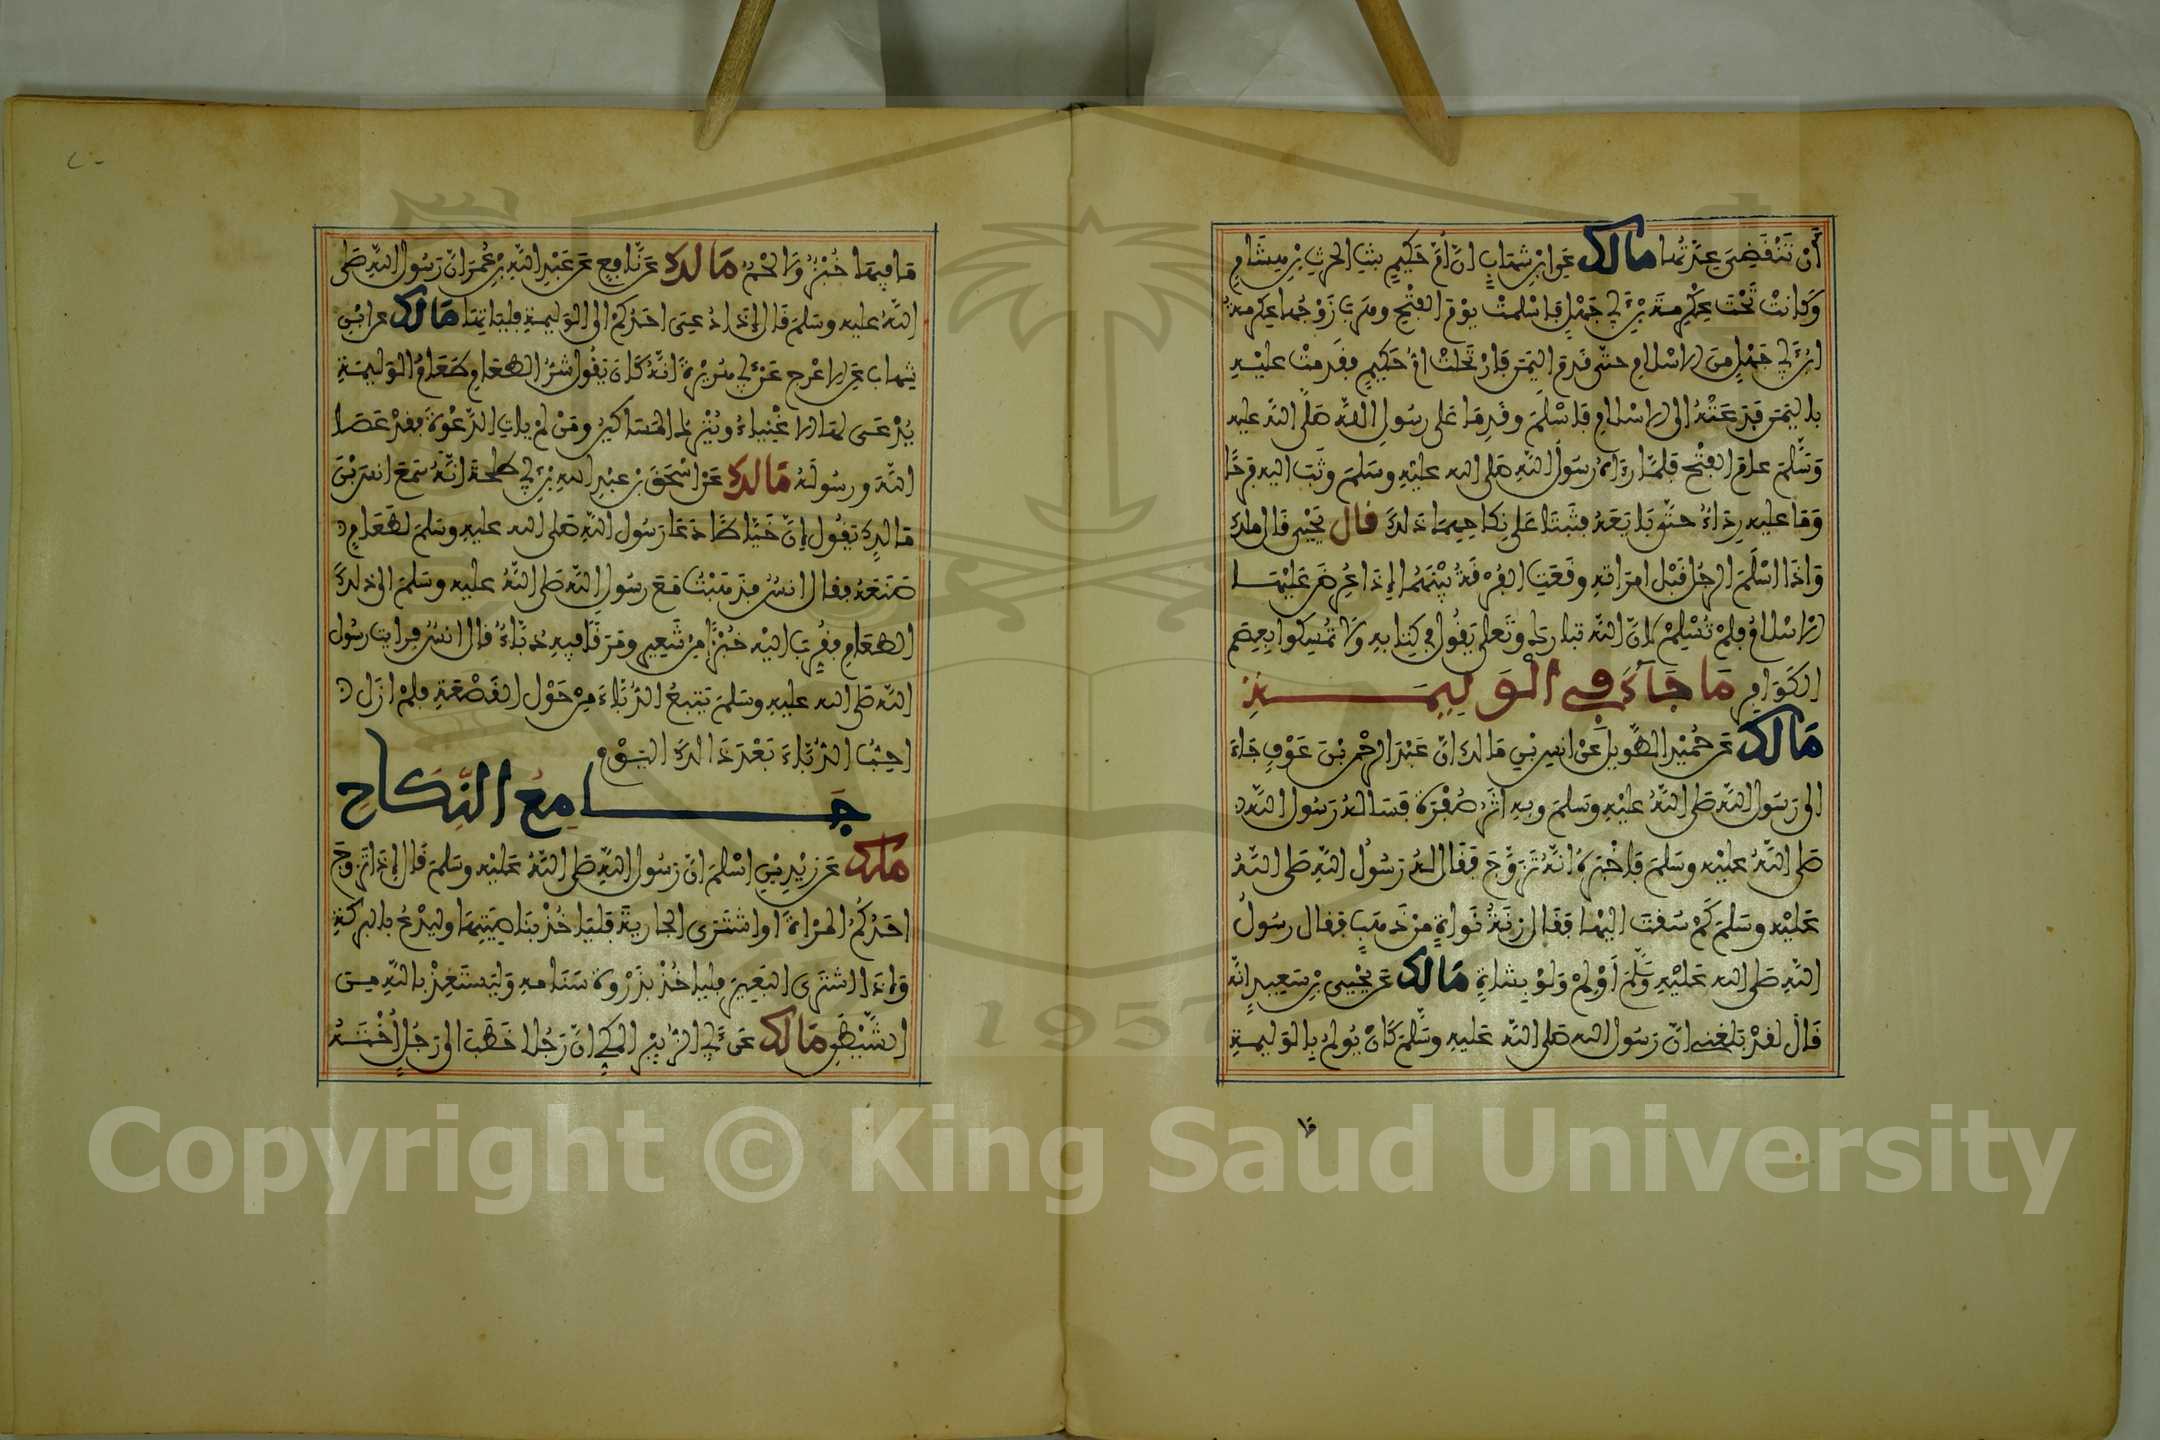 أن تنقضي عدتها مالك عن ابن شهاب ان أم حكيم بنت الحرث بن هشام
وكانت تحت عكرمة بن أبي جهل فاسلمت يوم الفتح وهرب زوجها عكرمة
ابن أبي جهل من الاسلام حتى قدم اليمن فارتحلت ام حكيم فقدمت عليه
باليمن فدعته الى الاسلام فاسلم وقدم على رسول الله صلى الله عليه
وسلم عام الفتح فلما رءاه رسول الله صلى الله عليه وسلم وثب اليه فرحا
وما عليه رداء حتى بايعه فثبتا على نكاحهما ذلك قال يحيى قال ملك
واذا اسلم الرجل قبل امراته وقعت الفرقة بينهما إذا عرض عليها
الاسلام فلم تسلم لان الله تبارك وتعلى يقول في كتابه ولا تمسكوا بعصم
الكوافر ما جاء في الوليمة
مالك عن حميد الطويل عن انس بن مالك ان عبد الرحمن بن عوف جاء
الى رسول الله صلى الله عليه وسلم وبه اثر صفرة فساله رسول الله
صلى الله عليه وسلم فاخبره انه تزوج فقال له رسول الله صلى الله
عليه وسلم كم سقت اليها فقال زنة نواة من ذهب فقال رسول
الله صلى الله عليه وسلم أولم ولو بشاة مالك عن يحيى بن سعيد انه
قال لقد بلغني ان رسول الله صلى الله عليه وسلم كان يولم بالوليمة
ما
ما فيها خبز ولا لحم مالك عن نافع عن عبد الله بن عمر ان رسول الله صلى
الله عليه وسلم قال إذا دعي احدكم الى الوليمة فلياتها مالك عن ابن
شهاب عن الاعرج عن أبي هريرة انه كان يقول شر الطعام طعام الوليمة
يدعى لها الاغنياء ويترك المساكين ومن لم يات الدعوة فقد عصا
الله ورسوله مالك عن اسحق بن عبد الله بن أبي طلحة انه سمع انس بن
مالك يقول إن خياطا دعا رسول الله صلى الله عليه وسلم لطعام
صنعه فقال انس فذهبت مع رسول الله صلى الله عليه وسلم الى ذلك
الطعام فقرب اليه خبزا من شعير ومرقا فيه دباء قال انس فرايت رسول
الله صلى الله عليه وسلم يتتبع الدباء من حول القصعة فلم ازل
احب الدباء بعد ذالك اليوم
جامع النكاح
ملك عن زيد بن اسلم ان رسول الله صلى الله عليه وسلم قال إذا تزوج
احدكم المراة او اشترى الجارية فلياخذ بناصيتها وليدع بالبركة
وإذا اشترى البعير فلياخذ بذروة سنامه وليستعذ بالله من
الشيطن مالك عن أبي الزبير المكي ان رجلا خطب الى رجل اخته
Copyright © King Saud University
1957